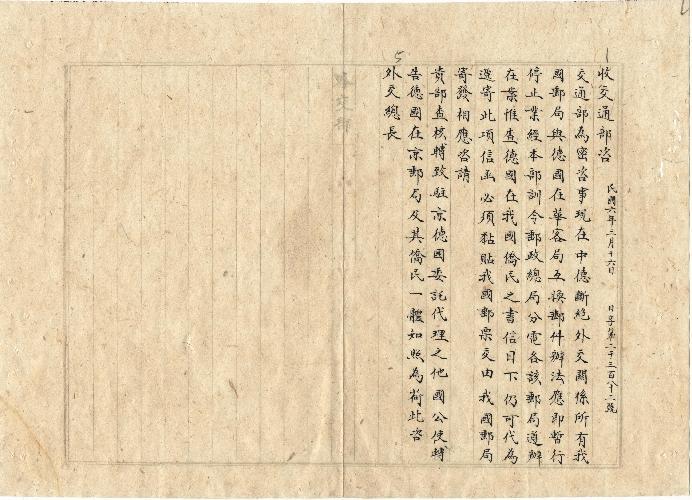 收交通部咨 民國六年三月十六日 日字第二千三百八十二號
交通部為密咨事現在中德斷絕外交關係所有我
國郵局與德國在華客局互換郵件辦法應即暫行
停止業經本部訓令郵政總局分電各該郵局遵辦
在案惟查德國在我國僑民之書信目下仍可代為
遞寄此項信函必須黏貼我國郵票交由我國郵局
寄發相應咨請
貴部查核轉致駐京德國委託代理之他國公使轉
告德國在京郵局及其僑民一體如照為荷此咨
外交總長
外交部